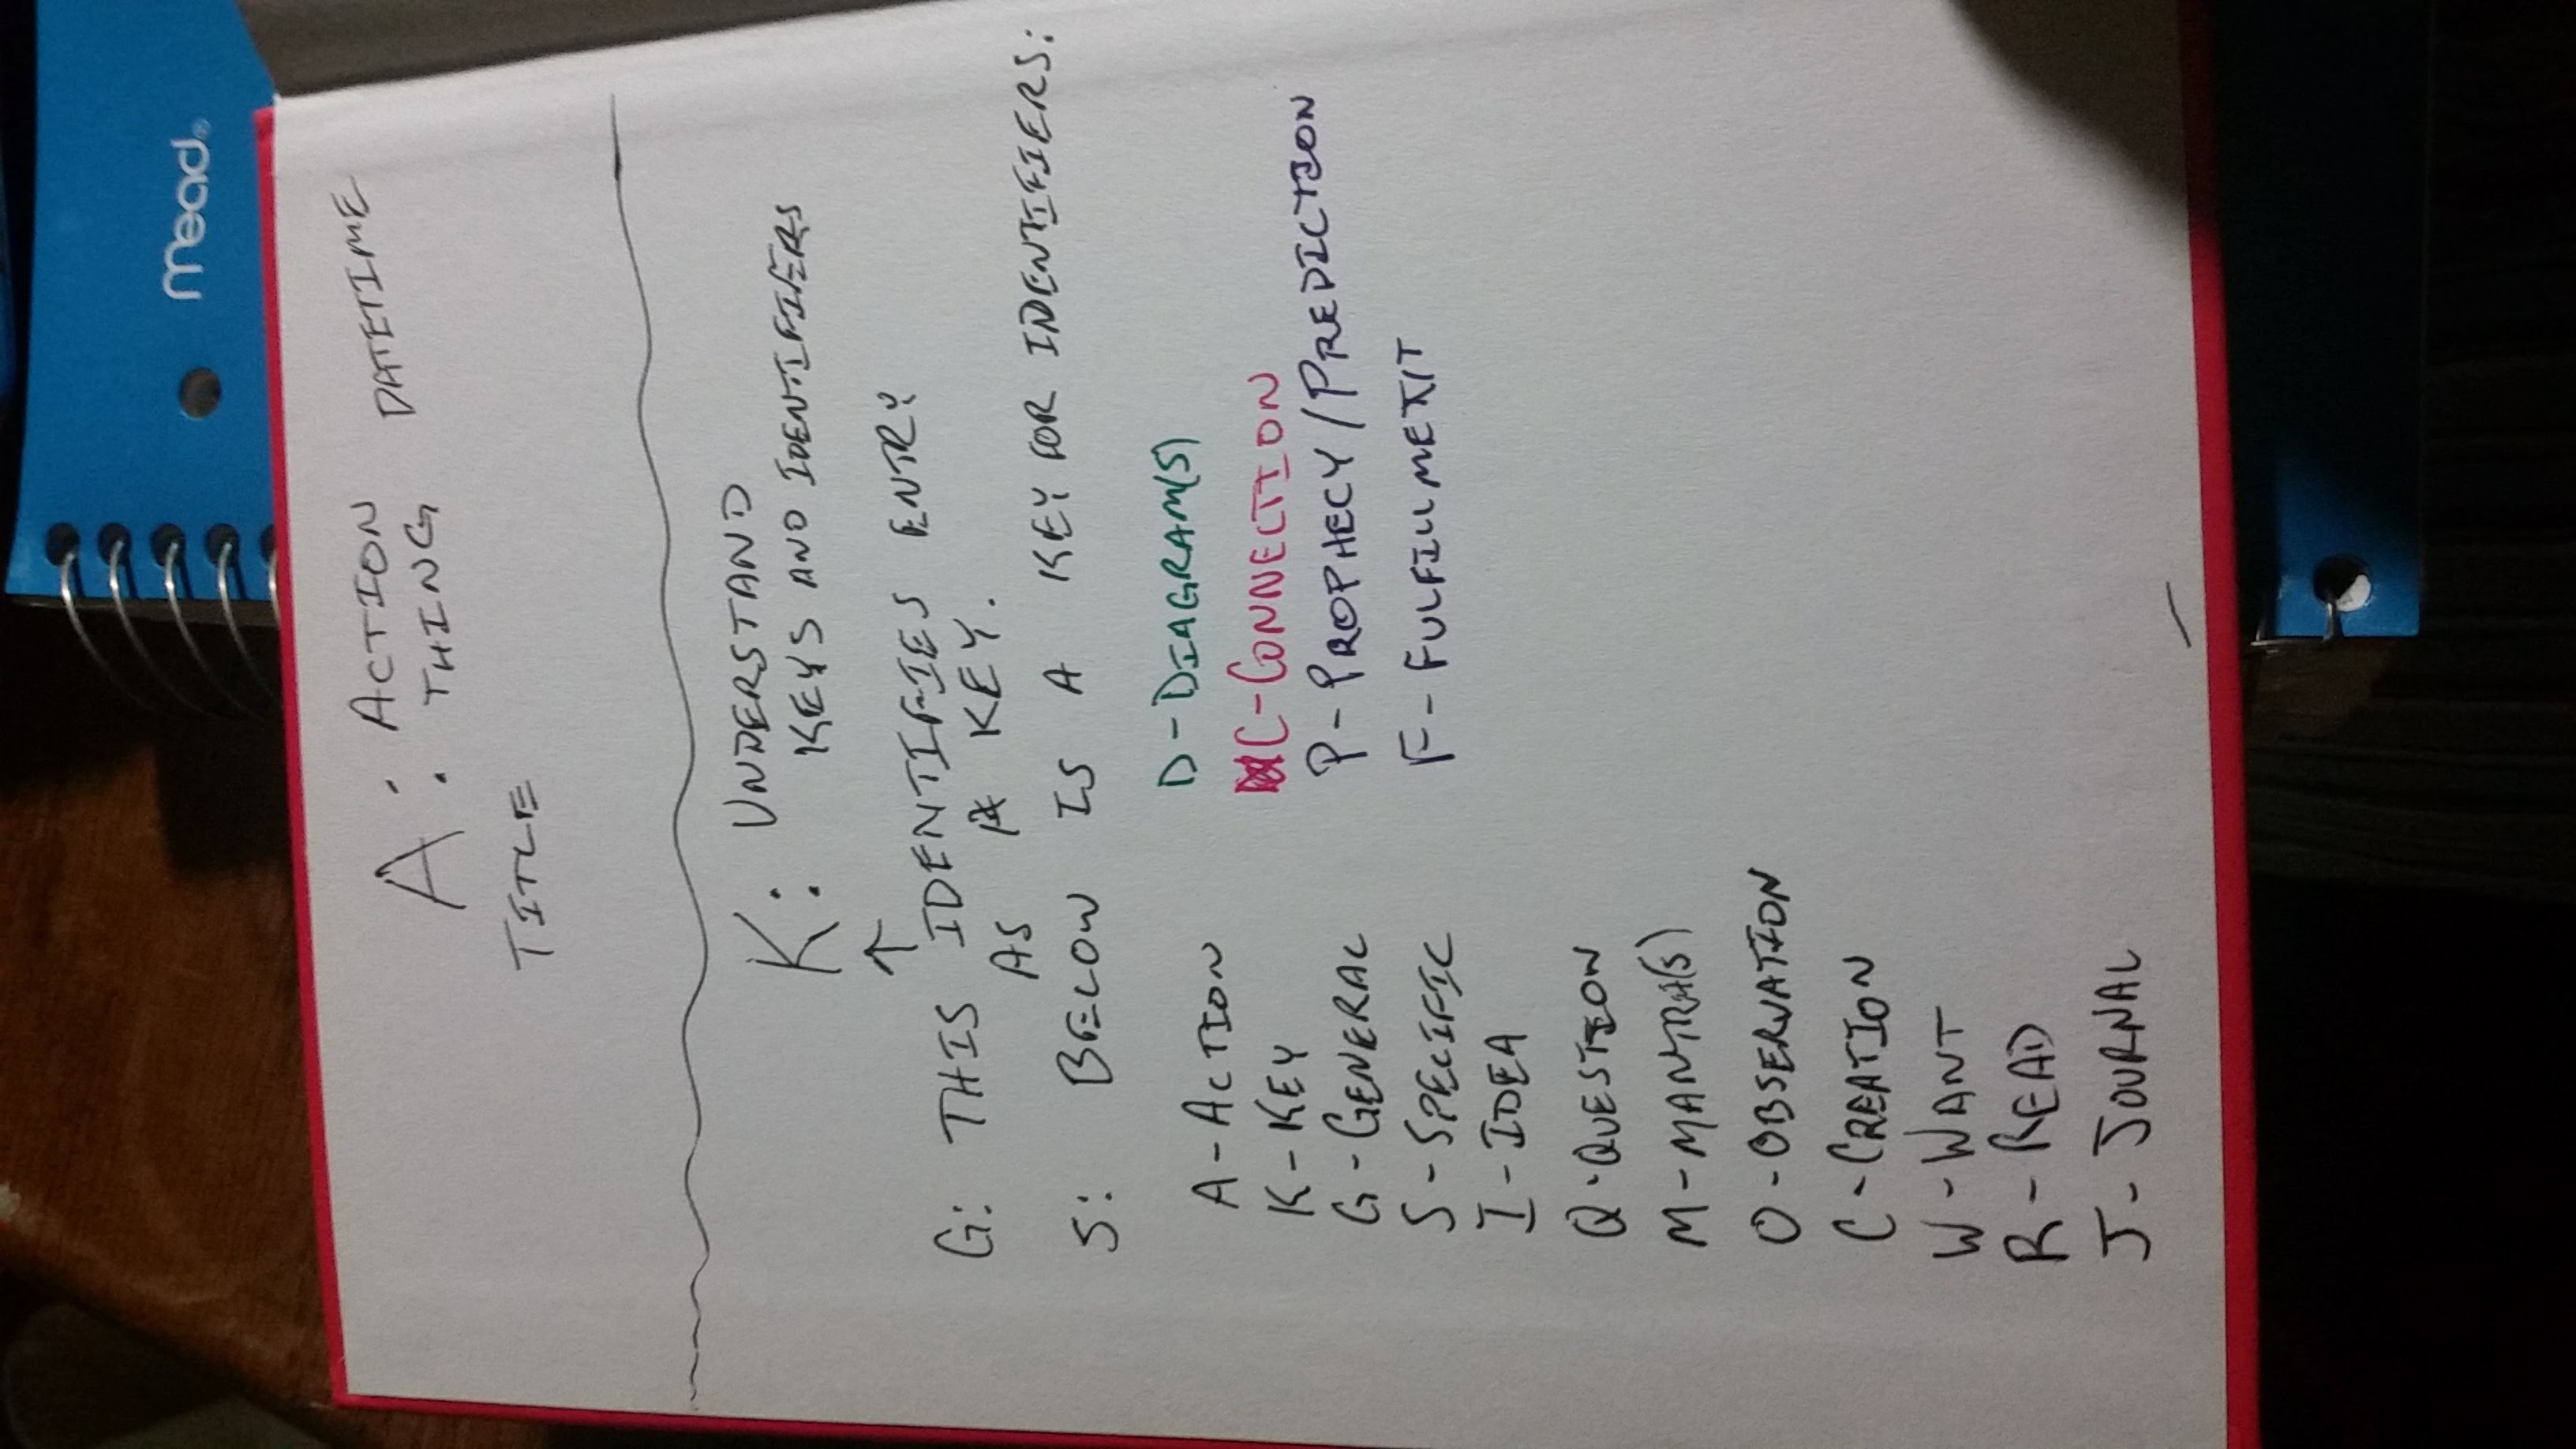 A: ACTION DATETIME
THING
TITLE
K: UNDERSTAND
KEYS AND IDENTIFIERS
↑
G: THIS IDENTIFIES ENTRY
AS A KEY.
S: BELOW IS A KEY FOR INDENTIFIERS:
A - ACTION
K - KEY
G - GENERAL
S - SPECIFIC
I - IDEA
Q - QUESTION
M - MANTRA(S)
O - OBSERVATION
C - CREATION
W - WANT
R - READ
J - JOURNAL
D - DIAGRAM(S)
C - CONNECTION
P - PROPHECY / PREDICTION
F - FULFILLMEXIT
Mead